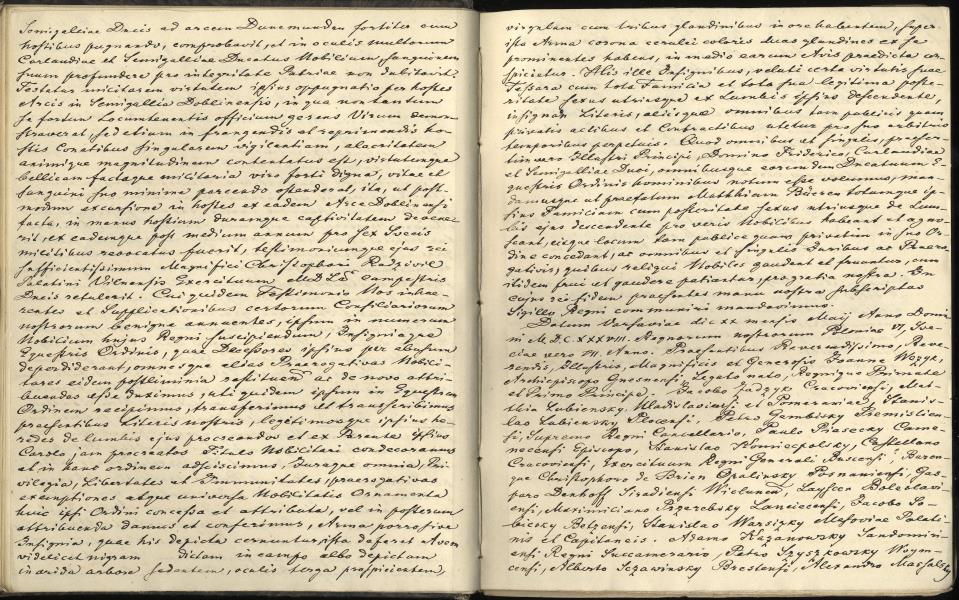 Semigalliae Ducis ad arcem Dunemunden fortiter cum
hostibus pugnando, comprobavit, et in oculis multorum
Curlandiae et Semigalliae Ducatus Nobilium, sanguinem
suum profundere pro integritate Patriae non dubitavit.
Testatur militarem virtutem ipsius oppugnatio per hostes
Arcis in Semigallia Doblinensis, in qua non tantum
se fortem Locumtenentis officium gerens Virum demon-
straverat, sed etiam in frangendis ac reprimendis ho-
stis Conatibus singularem vigilantiam, alacritatem
animique magnitudinem contestatus est, virtutemque
bellicam factaque militaria viro forti digna, vitae et
sanguini suo minime parcendo ostenderat, ita, ut post-
modum excursione in hostes ex eadem Arce Doblinensi
facta, in manus hostium duramque captivitatem devene-
rit, ex eademque post medium annum pro sex Suecis
militibus revocatus fuerit, testimoniumque ejus rei
sufficientissimum Magnifici Christophori Radzivil
Palatini Vilnensis Exercituum MDL campestris
Ducis retulerit. Cui quidem Testimonio Nos inhae-
rentes et Supplicationibus certorum Consiliariorum
nostrorum benigne annuentes, ipsum in numerum
Nobilium hujus Regni suscipiendum, Insigniaque
Equestris Ordinis, quae Decessores ipsius per abusum
deperdiderant, omnesque alias Praerogativas Nobili-
tares eidem postliminio restituend ac de novo attri-
buendas esse duximus, uti quidem ipsum in Equestrem
Ordinem recipimus, transferimus et transscribimus
praesentibus Literis nostris, legitimosque ipsius hae-
redes de lumbis ejus procreandos et ex Parente ipsius
Carolo jam procreatos Titulo Nobilitari condecoramus
et in hanc ordinem adsciscimus, Juraque omnia, Pri-
vilegia, Libertates et Immunitates, praerogativas
exemptiones atque universa Nobilitatis Ornamenta
huic ipsi Ordini concessa et attributa, vel in posterum
attribuenda damus et conferimus, Arma porro sive
Insignia, quae his depicta cernuntur, ista deferet Avem
videlicet nigram dictam in campo albo depictam
in arida arbore sedentem, oculis terga prospicientem,
virgulam cum tribus glandinibus in ore habentem, super
ista Arma corona cerulei coloris duas glandines ex se
prominentes habens, in medio earum Avis praedicta con-
spicietur. Atis ille Insignibus, veluti certa virtutis suae
Tessara cum tota Familia et tota sua legitima poste-
ritate sexus utriusque ex Lumbis ipsius descendente,
insignan Literis, aliisque omnibus tam publicis quam
privatis actibus et Contractibus utetur pro suo arbitrio
temporibus perpetuis. Quod omnibus et singulis, poten-
tium vero Illustri Principi, Domino Friderico, Curlandiae
et Semigalliae Duci, omnibusque eorundem Ducatuum E-
questris Ordinis hominibus notum esse volumus, man-
damusque ut praefatum Matthiam Bücren totamque ip-
sius Familiam cum posteritate sexus utriusque de Lum-
bis ejus descendente pro veris Nobilibus habeant et agno-
scant, eique locum tam publice quam privatim in suo Or-
dine concedant, ac omnibus et singulis Juribus ac Praero-
gativis, quibus reliqui Nobiles gaudent et fruantur, eum
itidem frui et gaudere patiantur, pro gratia nostra. In
cujus rei fidem praesentes manu nostra subscriptas
Sigillo Regni communiri mandavimus.
Datum Varsaviae die XX mensis Maij Anno Domi
ni M.D.C.XXXVIII. Regnorum nostrorum Poloniae VI, Sve-
ciae vero VII. Anno, Praesentibus Reverendissimo, Reve-
rendis, Illustris, Magnificis et Generosis Joanne Wężyk,
Archiepiscopo Gnesnensi, Legato nato, Regnique Primate
et Primo Principe, Jacobo Zadzyk, Cracoviensi, Mat-
thia Lubiensky, Wladislaviensi et Pomeraniae, Stanis-
lao Lubiensky, Plocensi, Petro Gembisky Premislien-
si, Supremo Regni Cancellario, Paulo Piasecky Came-
necensi Episcopo, Stanislao Koniecpolsky, Castellano
Cracoviensi, Exercituum Regni Generali Duce, Baron-
que Christophoro de Brien Opalinsky Posnaniensi, Gas-
paro Denhoff Siradiensi Wielunen, Boleslavi-
ensi, Maximiliano Przerebsky Lanciciensi, Jacobo So-
biesky Belzensi, Stanislao Warsizky Masoviae Palati-
nis et Capitaneis. Adamo Kazanowsky Sandomiri-
ensi Regni Succamerario, Petro Szyszkowsky Woyni-
censi, Alberto Sczawinsky Brestensi, Alexandro Massalsky